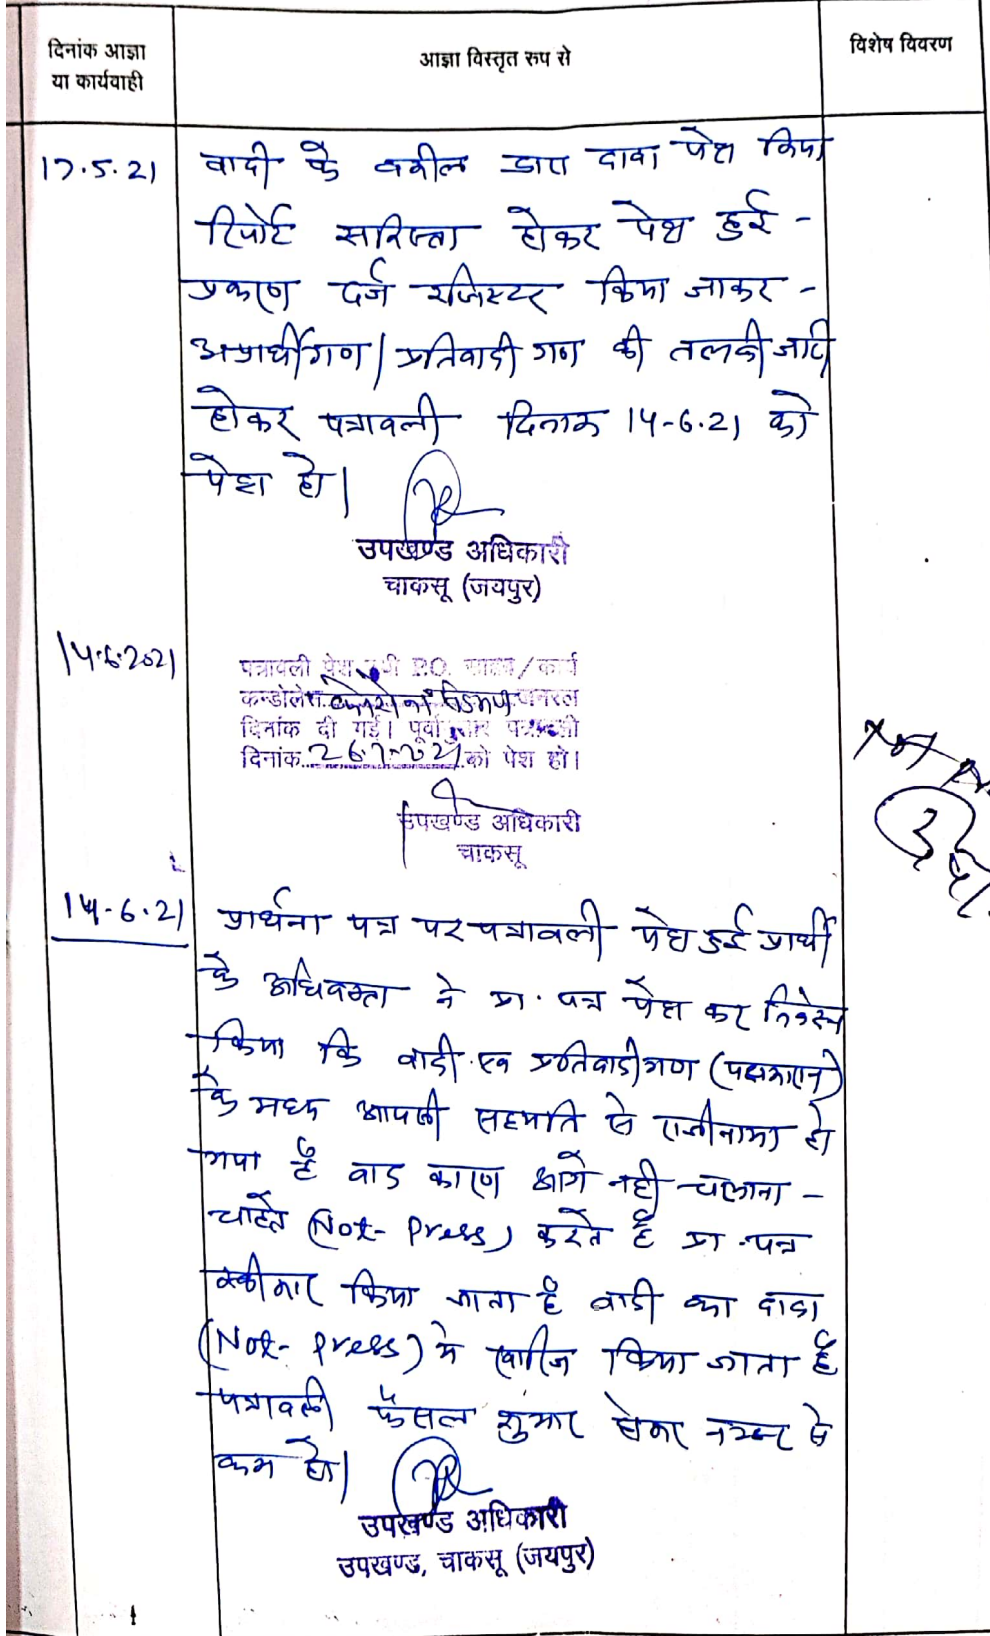 दिनांक आज्ञा
या कार्यवाही
आज्ञा विस्तृत रुप से
विशेष विवरण
17.5.21
वादी के वकील द्वारा दावा पेश किया
रिपोर्ट सरिस्ता होकर पेश हुई -
प्रकरण दर्ज रजिस्टर किया जाकर -
अप्रार्थीगण/प्रतिवादी गण की तलबी जारी
होकर पत्रावली दिनांक 14-6-21 को
पेश हो।
उपखण्ड अधिकारी
चाकसू (जयपुर)
14.6.2021
पत्रावली पेश हुयी P.O. / कार्य
कन्डोलेंस जनरल
दिनांक दी गई। पूर्वानुसार पत्रावली
दिनांक 26.7.2021 को पेश हो।
उपखण्ड अधिकारी
चाकसू
14-6-21
प्रार्थना पत्र पर पत्रावली पेश हुई प्रार्थी
के अधिवक्ता ने प्रा. पत्र पेश कर निवेदन
किया कि वादी एव प्रतिवादीगण (पक्षकारान)
के मध्य आपसी सहमति से राजीनामा हो
गया है वाद कारण आगे नही चलाना -
चाहते (Not- Press) करते है प्रा. पत्र
स्वीकार किया जाता है वादी का दावा
(Not- Press) मे खारिज किया जाता है
पत्रावली फैसल शुमार होकर नम्बर से
कम हो।
उपखण्ड अधिकारी
उपखण्ड, चाकसू (जयपुर)